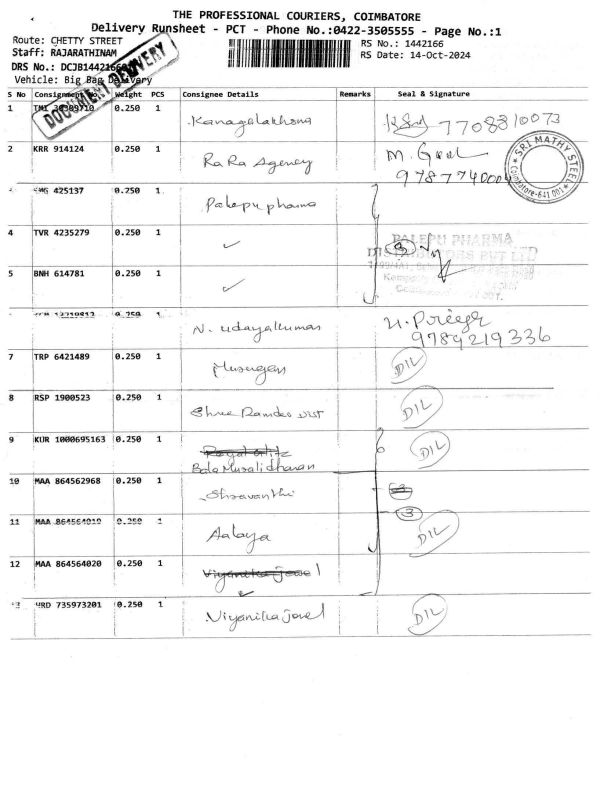 THE PROFESSIONAL COURIERS, COIMBATORE
Delivery Runsheet - PCT - Phone No.:0422-3505555 - Page No.:1
Route: CHETTY STREET
RS No.: 1442166
Staff: RAJARATHINAM
RS Date: 14-Oct-2024
DRS No.: DCJB1442166
Vehicle: Big Bag Delivery
DOCUMENT DELIVERY
S No Consignment No. Weight PCS Consignee Details Remarks Seal & Signature
1 TMI 0.250 1 Kanagalakhsma 7708310073
2 KRR 914124 0.250 1 RaRa Agency M. 9787740004
SRI MATHY STEEL
Coimbatore-641 001
425137 0.250 1 Palepu pharma
4 TVR 4235279 0.250 1 ✓ 3
PALEPU PHARMA
DISTRIBUTORS PVT LTD
5 BNH 614781 0.250 1 ✓
0.250 1 N. Udayakumar 9789219336
7 TRP 6421489 0.250 1 Murugan D/L
8 RSP 1900523 0.250 1 Shree Ramdev Dist D/L
9 KUR 1000695163 0.250 1 D/L
Bala Muralidharan
10 MAA 864562968 0.250 1 Shravanthi 3
11 MAA 864564019 0.250 1 Aalaya 3 D/L
12 MAA 864564020 0.250 1 Viyanika jowel ✓
735973201 0.250 1 Viyanika jowel D/L